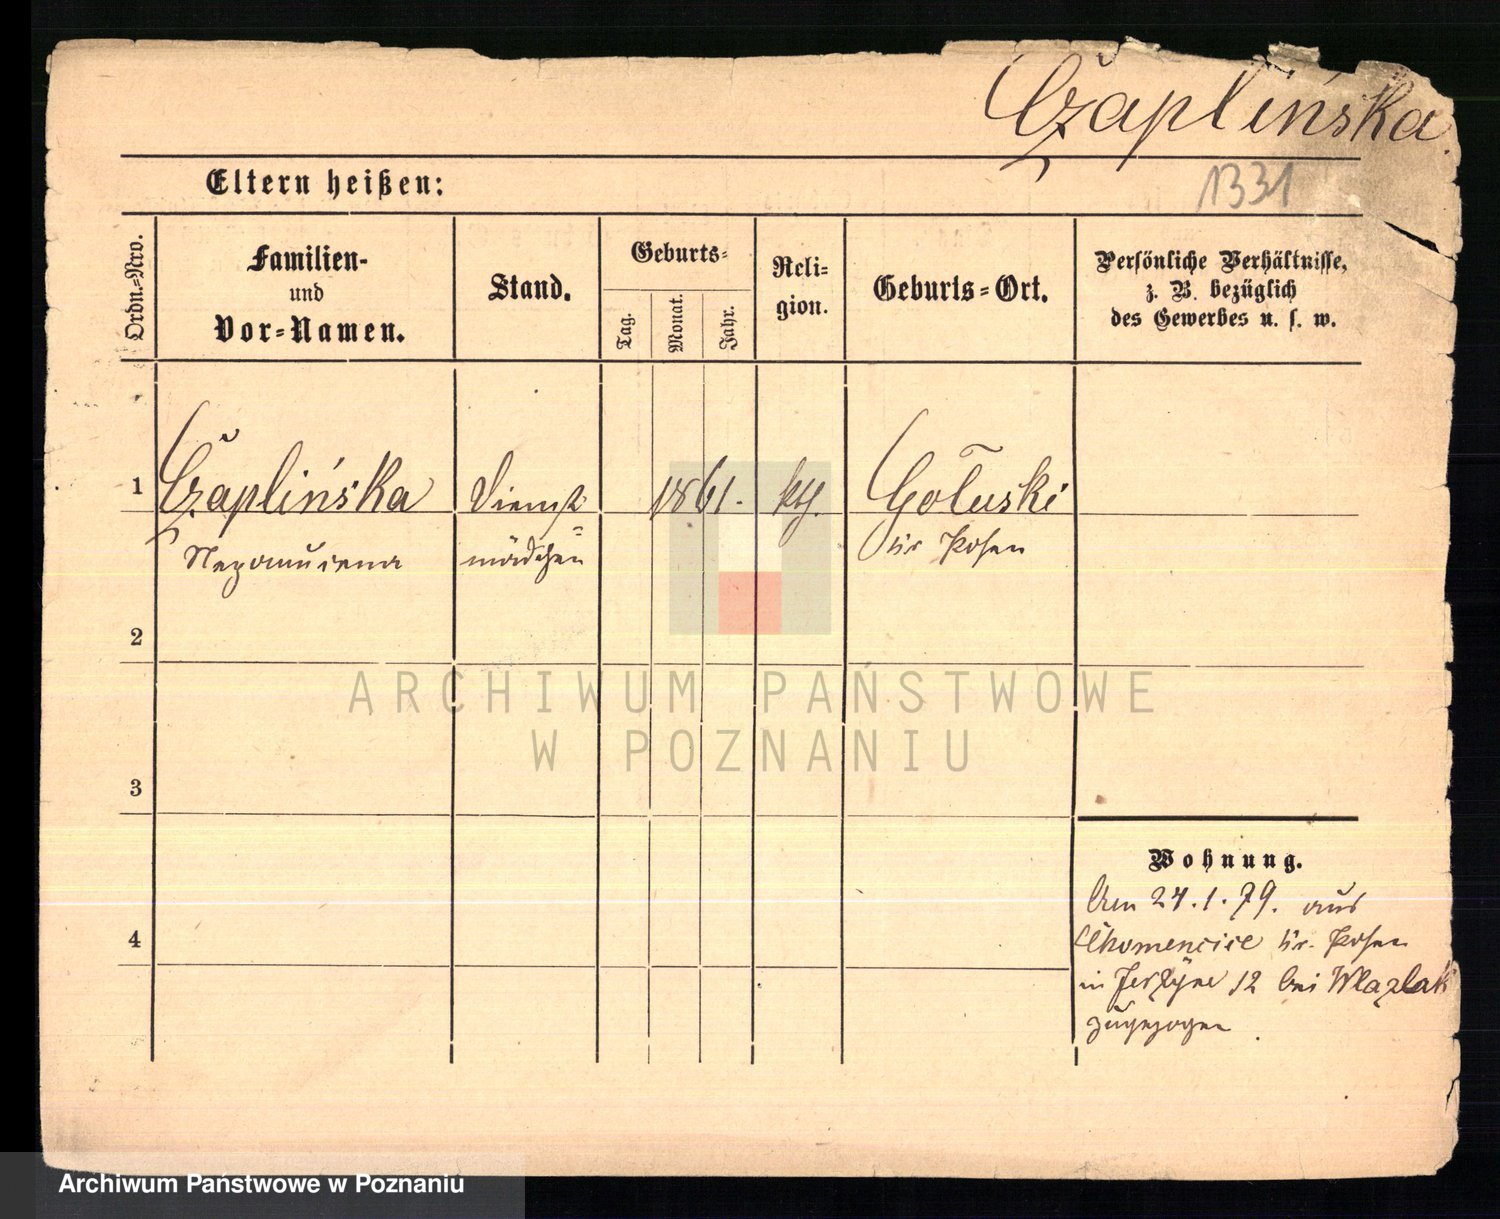 Czaplińska.
Eltern heißen:
1331
Ordn.-Nro.
Familien-
und
Vor-Namen.
Stand.
Geburts-
Tag.
Monat.
Jahr.
Reli-
gion.
Geburts-Ort.
Persönliche Verhältnisse,
z. B. bezüglich
des Gewerbes u. s. w.
1 Czaplińska Dienst- 1861. kth. Gołuski
Nepomucena mädchen Kr Posen
2
ARCHIWUM PAŃSTWOWE
W POZNANIU
3
Wohnung.
Am 24.1.79. aus
Chomencice Kr. Posen
4
in Jerzyce 12 bei Wlazlak
zugezogen.
Archiwum Państwowe w Poznaniu